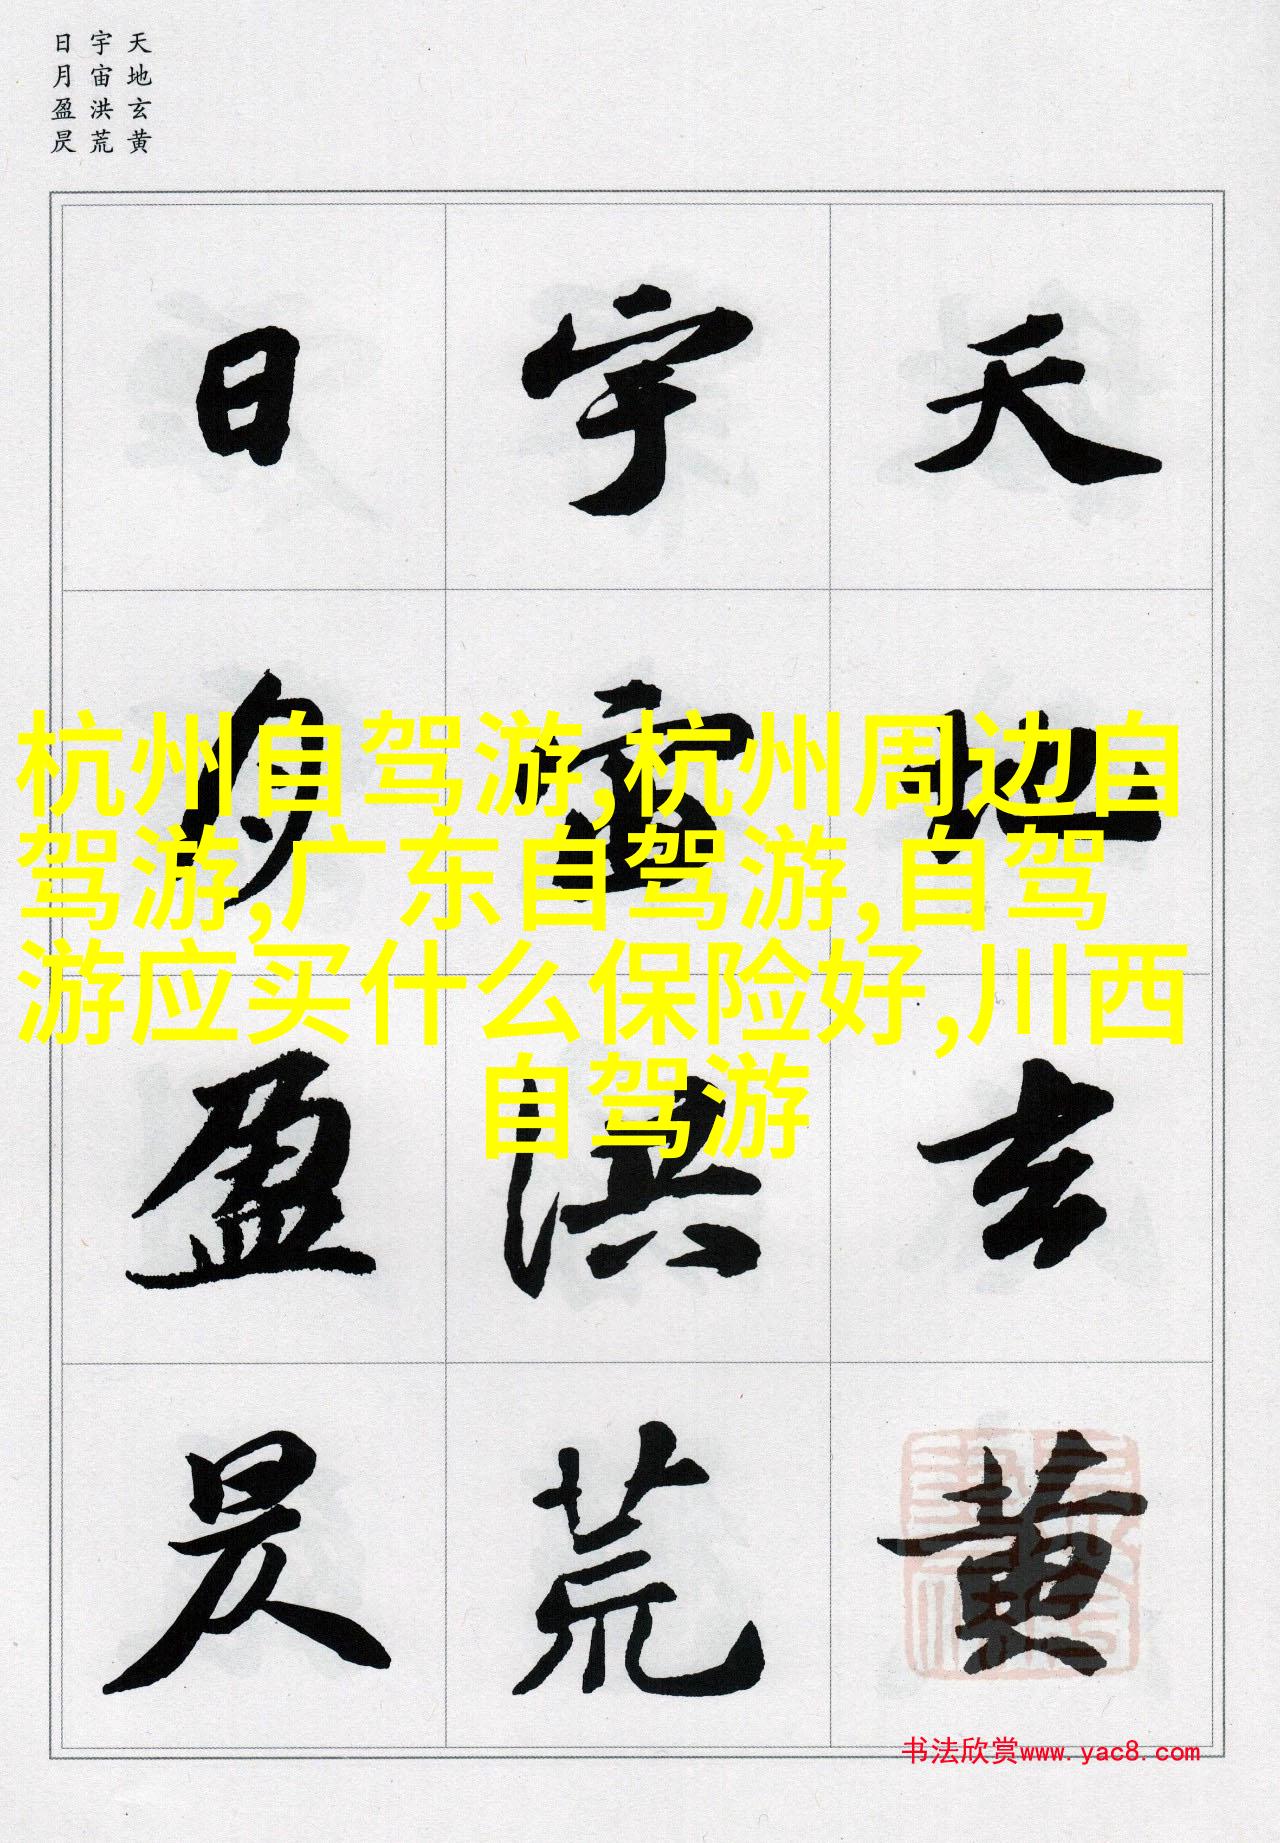 天地玄黄
宇宙洪荒
日月盈昃
天地玄黄
宇宙洪荒
日月盈昃
杭州自驾游,杭州周边自
驾游,广东自驾游,自驾
游应买什么保险好,川西
自驾游
书法欣赏www.yac8.com